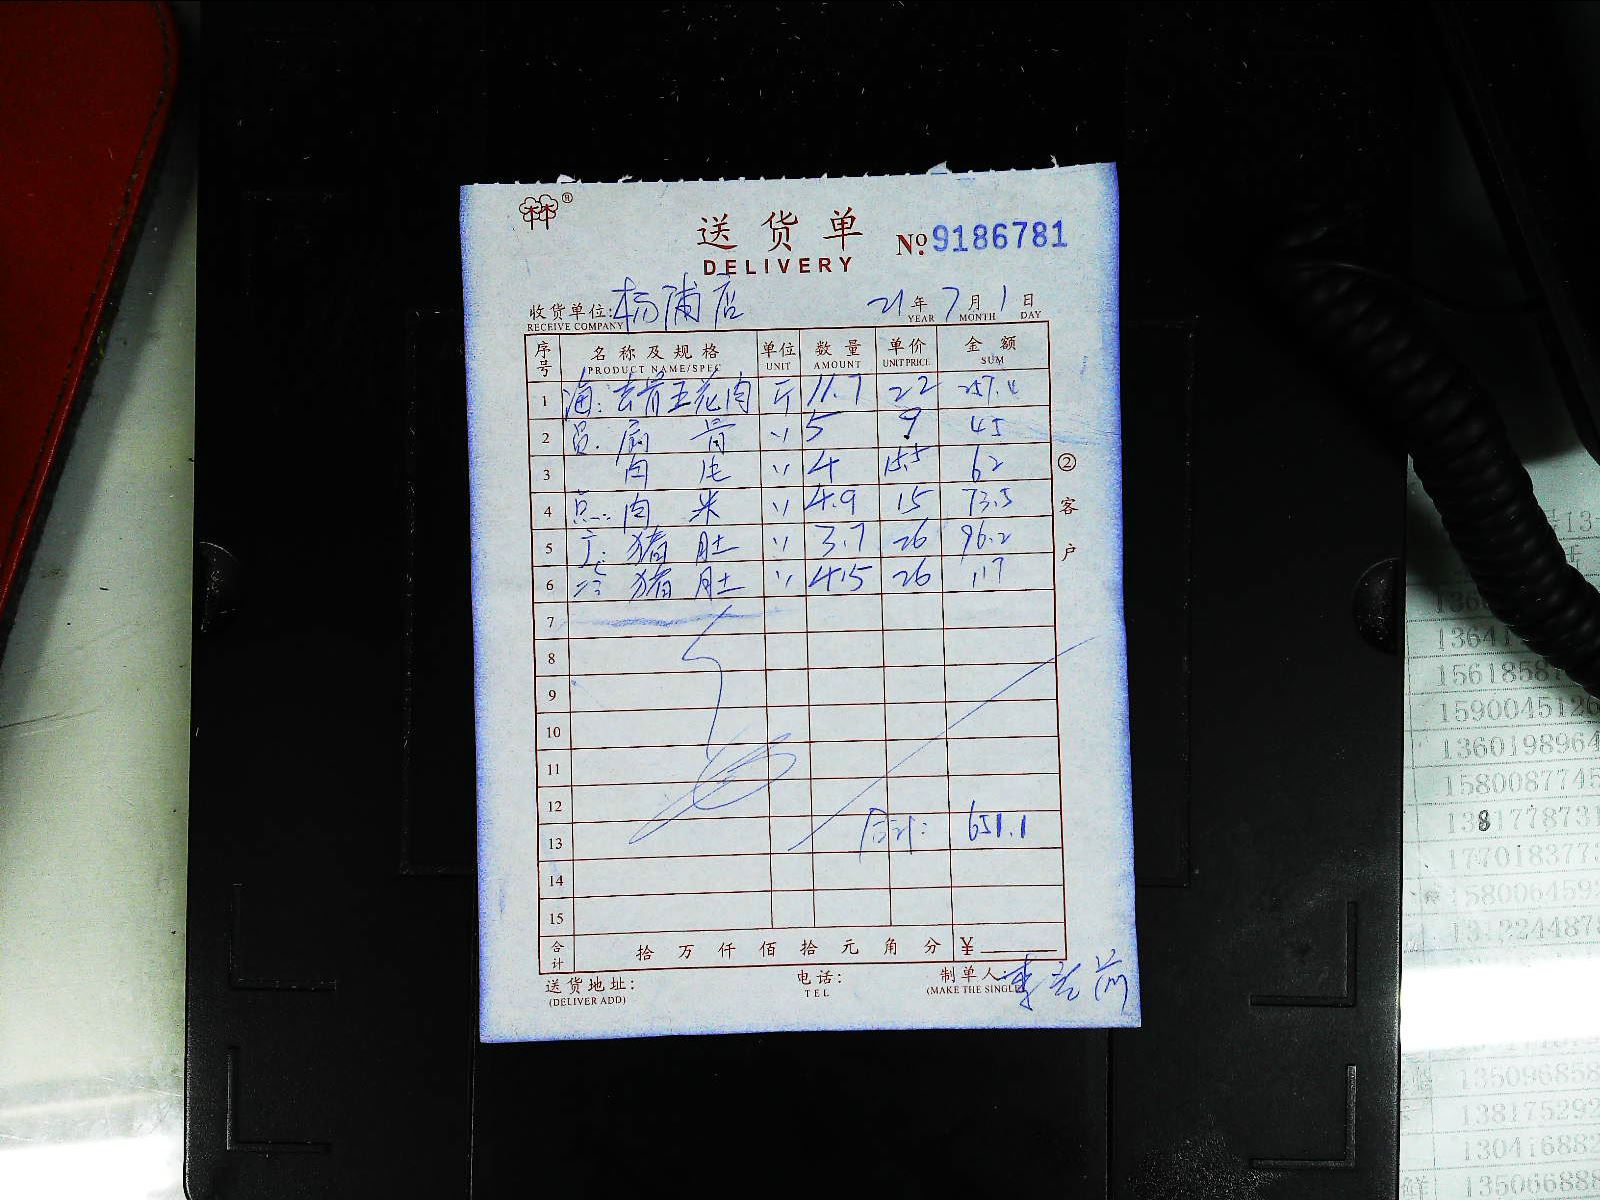 林®
送货单 No. 9186781
DELIVERY
收货单位: 杨浦店 21年7月1日
RECEIVE COMPANY YEAR MONTH DAY
序号 名称及规格 单位 数量 单价 金额
PRODUCT NAME/SPEC UNIT AMOUNT UNIT PRICE SUM
1 海: 去骨五花肉 斤 11.7 22 257.4
2 员: 扇骨 〃 5 9 45
3 肉 〃 4 15.5 62
4 点: 肉米 〃 4.9 15 73.5
5 广: 猪肚 〃 3.7 26 96.2
6 冷 猪肚 〃 4.5 26 117
7
8
9
10
11
12
13 合计: 651.1
14
15
合计 拾万仟佰拾元角分 ¥
送货地址: 电话: 制单人: 李
(DELIVER ADD) TEL (MAKE THE SINGLE)
②客户
1590045126
1360198964
1580087745
1381778731
1770183773
1580064592